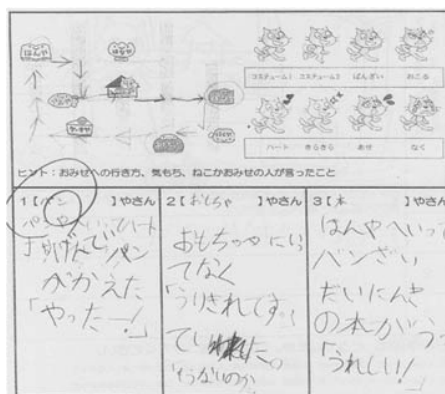 はんや
コスチューム1 コスチューム2 ばんざい おこる
ハート きらきら あせ なく
ヒント:おみせへの行き方、気もち、ねこかおみせの人が言ったこと
1【パン 】やさん
パンやへいってハート
パン
がかえた
「やったー!」
2【おもちゃ 】やさん
おもちゃやにいっ
てなく
「うりきれです。
3【本 】やさん
はんやへいって
バンざい
だいにんき
の本がう
「うれしい!」